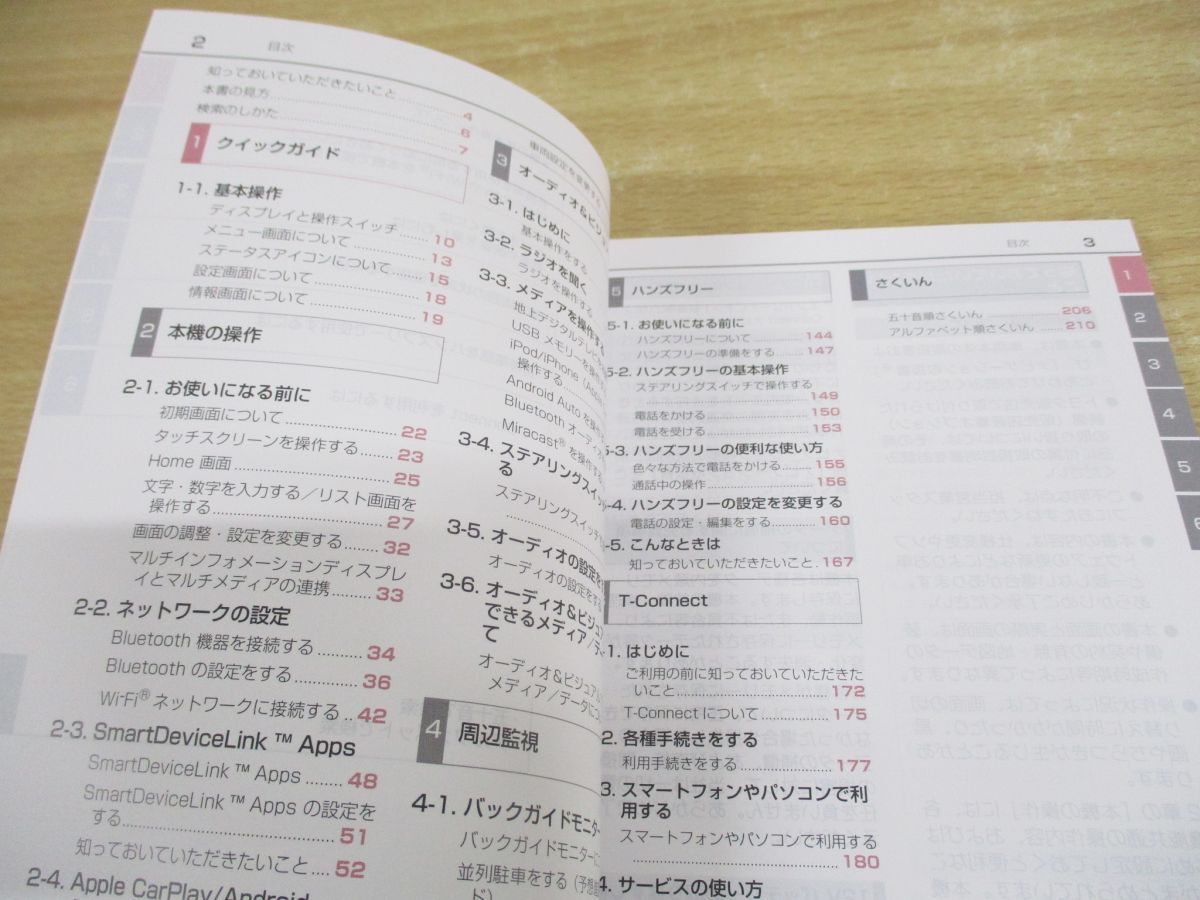 2
目次
知っておいていただきたいこと
4
本書の見方
6
検索のしかた
7
1
クイックガイド
1-1. 基本操作
ディスプレイと操作スイッチ
10
メニュー画面について
13
ステータスアイコンについて
15
設定画面について
18
情報画面について
19
2
本機の操作
2-1. お使いになる前に
初期画面について
22
タッチスクリーンを操作する
23
Home 画面
25
文字・数字を入力する／リスト画面を
操作する
27
画面の調整・設定を変更する
32
マルチインフォメーションディスプレ
イとマルチメディアの連携
33
2-2. ネットワークの設定
Bluetooth 機器を接続する
34
Bluetooth の設定をする
36
Wi-Fi® ネットワークに接続する
42
2-3. SmartDeviceLink ™ Apps
SmartDeviceLink ™ Apps
48
SmartDeviceLink ™ Apps の設定を
する
51
知っておいていただきたいこと
52
2-4. Apple CarPlay/Android
車両設定を変更する
3
オーディオ&ビジ
3-1. はじめに
基本操作をする
3-2. ラジオを聞く
ラジオを操作する
3-3. メディアを操作する
地上デジタルテレビを
USB メモリーを操作
iPod/iPhone
操作する
Android Auto を操作
Bluetooth オーディオ
Miracast® を操作する
3-4. ステアリングスイッ
る
ステアリングスイッチ
3-5. オーディオの設定を
オーディオの設定をする
3-6. オーディオ&ビジュ
できるメディア/デ
て
オーディオ&ビジュアル
メディア/データに
4
周辺監視
4-1. バックガイドモニター
バックガイドモニターに
並列駐車をする (予想
ド)
目次
3
5
ハンズフリー
5-1. お使いになる前に
ハンズフリーについて
144
ハンズフリーの準備をする
147
5-2. ハンズフリーの基本操作
ステアリングスイッチで操作する
149
電話をかける
150
電話を受ける
153
5-3. ハンズフリーの便利な使い方
色々な方法で電話をかける
155
通話中の操作
156
-4. ハンズフリーの設定を変更する
電話の設定・編集をする
160
-5. こんなときは
知っておいていただきたいこと
167
T-Connect
1. はじめに
ご利用の前に知っておいていただきた
いこと
172
T-Connect について
175
2. 各種手続きをする
利用手続きをする
177
3. スマートフォンやパソコンで利
用する
スマートフォンやパソコンで利用する
180
4. サービスの使い方
さくいん
五十音順さくいん
206
アルファベット順さくいん
210
1
2
3
4
5
6